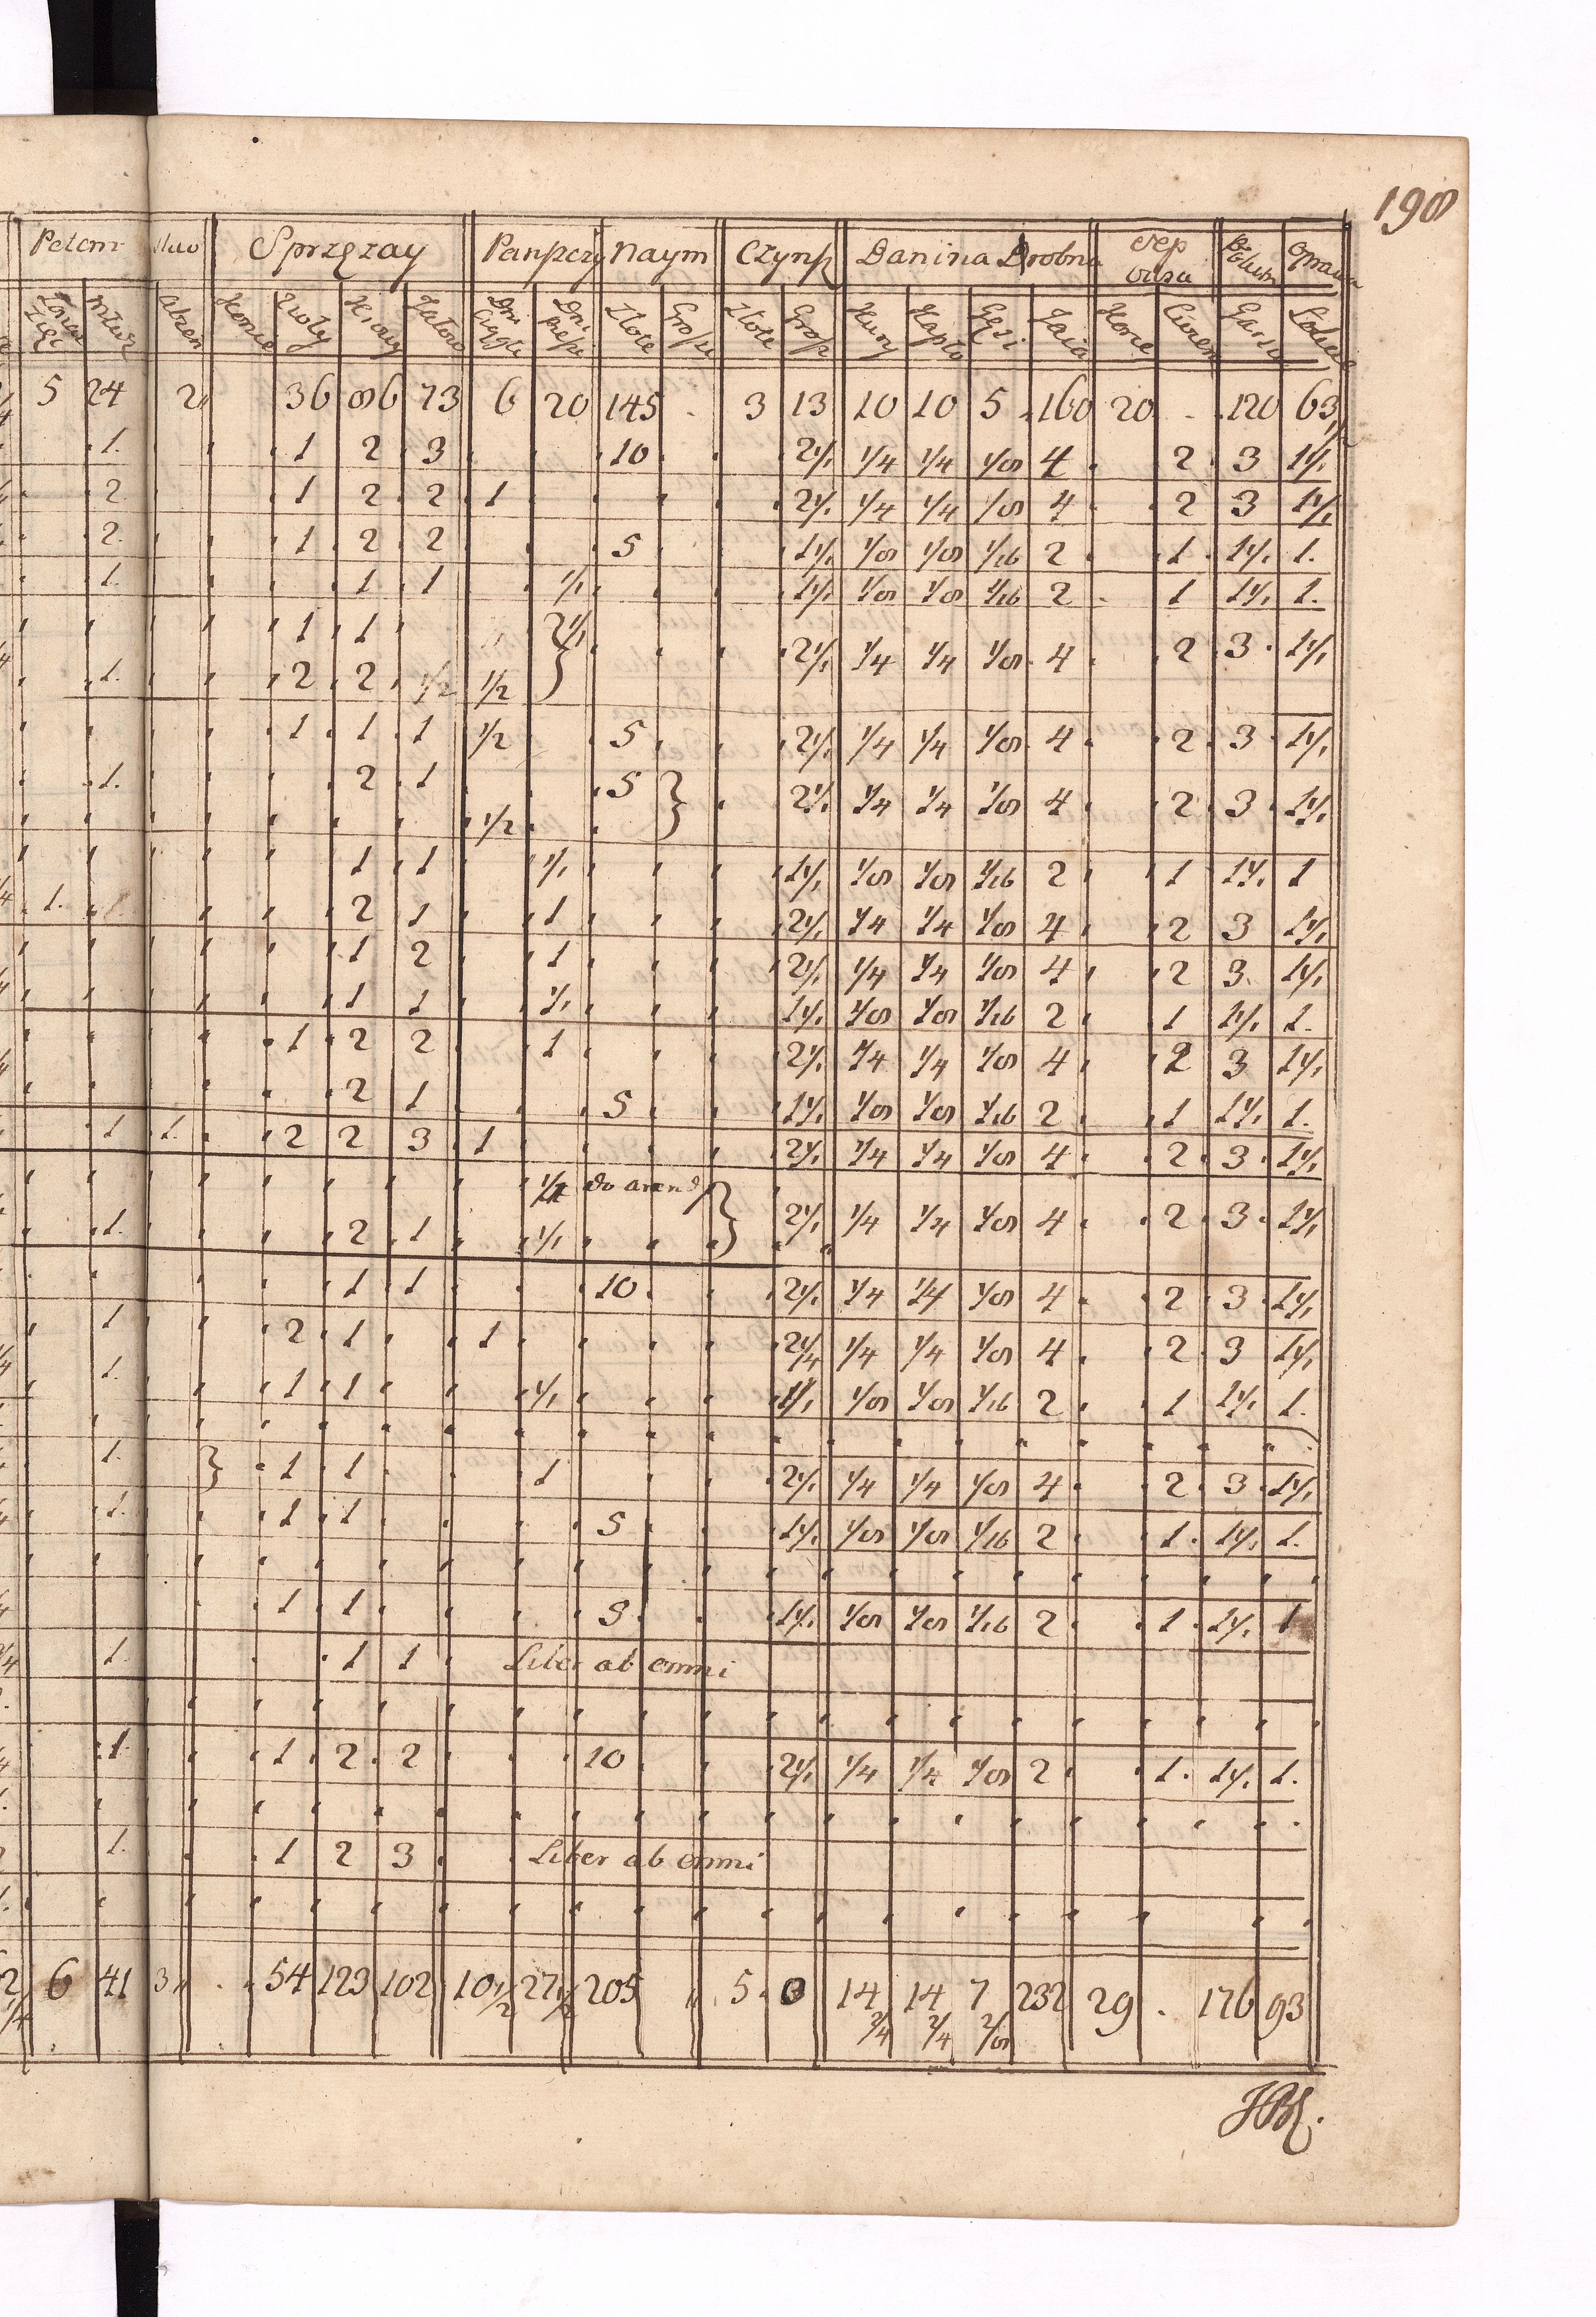 198
Potom stwo Sprzężay Panszczy Naym Czynsz Danina Drobna Sep owsa oprawa
Zięć abzen Konie Woły Krowy Dni Dni Złote Grosze Złote Grosz Kury Kapło Gęsi Jaia Korce Garce
5 24 2 36 86 73 6 20 145 . 3 13 10 10 5 160 20 . 120 63
1. 1 2 3 10 2 1/1 1/4 1/4 1/8 4 2 3 1 1/1
2 1 2 2 1 2 1/1 1/4 1/4 1/8 4 2 3 1 1/1
2 1 2 2 5 1 1/1 1/8 1/8 1/16 2 1 1 1/1 1.
1. 1 1 1/1 1 1/1 1/8 1/8 1/16 2 1 1 1/1 1.
1 1 2 1/1 } 2 1/1 1/4 1/4 1/8 4 2 3 1 1/1
1. 2 2 1/2 1/2
1 1 1 1/2 5 2 1/1 1/4 1/4 1/8 4 2 3 1 1/1
1. 2 1 5 } 2 1/1 1/4 1/4 1/8 4 2 3 1 1/1
1/2
1 1 1/1 1 1/1 1/8 1/8 1/16 2 1 1 1/1 1
1. 2 1 1 2 1/1 1/4 1/4 1/8 4 2 3 1 1/1
1 2 1 2 1/1 1/4 1/4 1/8 4 2 3 1 1/1
1 1 1/1 1 1/1 1/8 1/8 1/16 2 1 1 1/1 1.
1 2 2 1 2 1/1 1/4 1/4 1/8 4 2 3 1 1/1
2 1 5 1 1/1 1/8 1/8 1/16 2 1 1 1/1 1.
1 1. 2 2 3 1 2 1/1 1/4 1/4 1/8 4 2 3 1 1/1
do arend } 2 1/1 1/4 1/4 1/8 4 2 3 1 1/1
1. 2 1 1/1
1 1 10 2 1/1 1/4 1/4 1/8 4 2 3 1 1/1
1 2 1 1 2 1/4 1/4 1/4 1/8 4 2 3 1 1/1
1. 1 1 1/1 1 1/1 1/8 1/8 1/16 2 1 1 1/1 1.
1. } 1 1 1 2 1/1 1/4 1/4 1/8 4 2 3 1 1/1
1. 1 1 5 1 1/1 1/8 1/8 1/16 2 1. 1 1/1 1.
1 1 5 1 1/1 1/8 1/8 1/16 2 1. 1 1/1 1
1. 1 1 Liber ab omni
1. 1 2 2 10 2 1/1 1/4 1/4 1/8 2 1. 1 1/1 1.
1. 1 2 3 Liber ab omni
6 41 3 . 54 123 102 10 1/2 27 1/2 205 " 5. 0 14 2/4 14 2/4 7 2/8 232 29 . 176 93